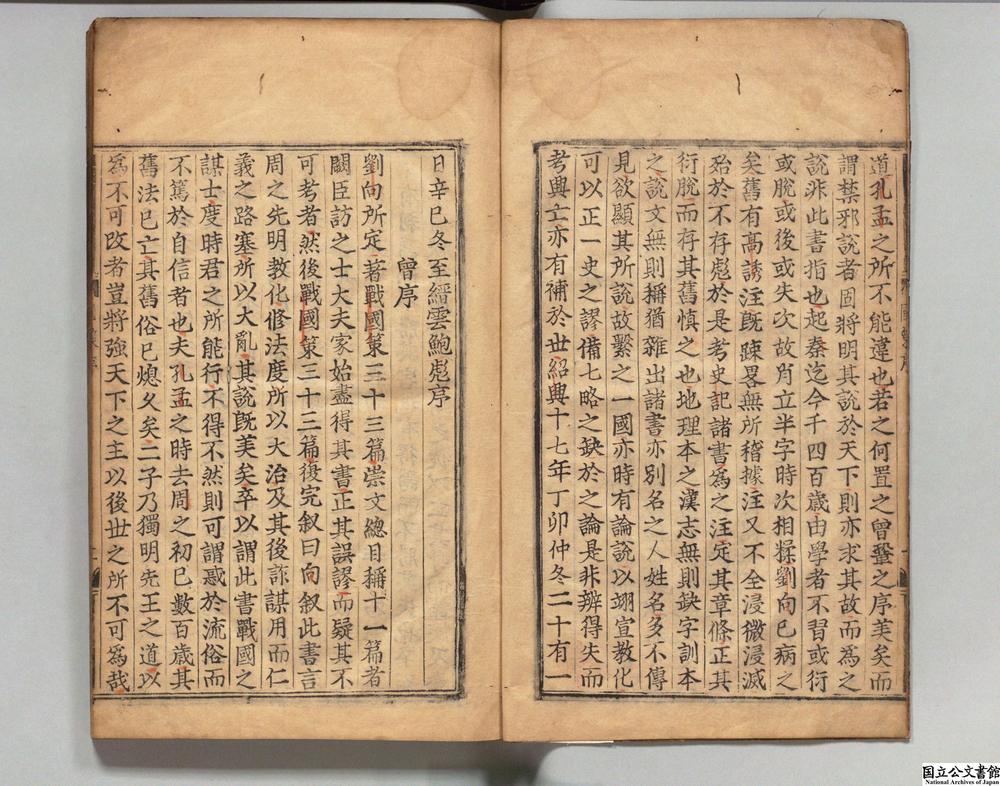 道孔孟之所不能違也若之何置之曾鞏之序美矣而
謂禁邪說者固將明其說於天下則亦求其故而為之
說非此書指也起秦迄今千四百歲由學者不習或衍
或脫或後或失次故肖立半字時次相糅劉向已病之
矣舊有高誘注旣踈畧無所稽據注又不全浸微浸滅
殆於不存彪於是考史記諸書爲之注定其章條正其
衍脫而存其舊慎之也地理本之漢志無則缺字訓本
之說文無則稱猶雜出諸書亦別名之人姓名多不傳
見欲顯其所說故繫之一國亦時有論說以翊宣教化
可以正一史之謬備七略之缺於之論是非辨得失而
考興亡亦有補於世紹興十七年丁卯仲冬二十有一
日辛巳冬至縉雲鮑彪序
曾序
劉向所定著戰國策三十三篇崇文總目稱十一篇者
闕臣訪之士大夫家始盡得其書正其誤謬而疑其不
可考者然後戰國策三十三篇復完叙曰向叙此書言
周之先明教化修法度所以大治及其後詐謀用而仁
義之路塞所以大亂其說旣美矣卒以謂此書戰國之
謀士度時君之所能行不得不然則可謂惑於流俗而
不篤於自信者也夫孔孟之時去周之初已數百歲其
舊法已亡其舊俗已熄久矣二子乃獨明先王之道以
爲不可改者豈將強天下之主以後世之所不可為哉
国立公文書館
National Archives of Japan